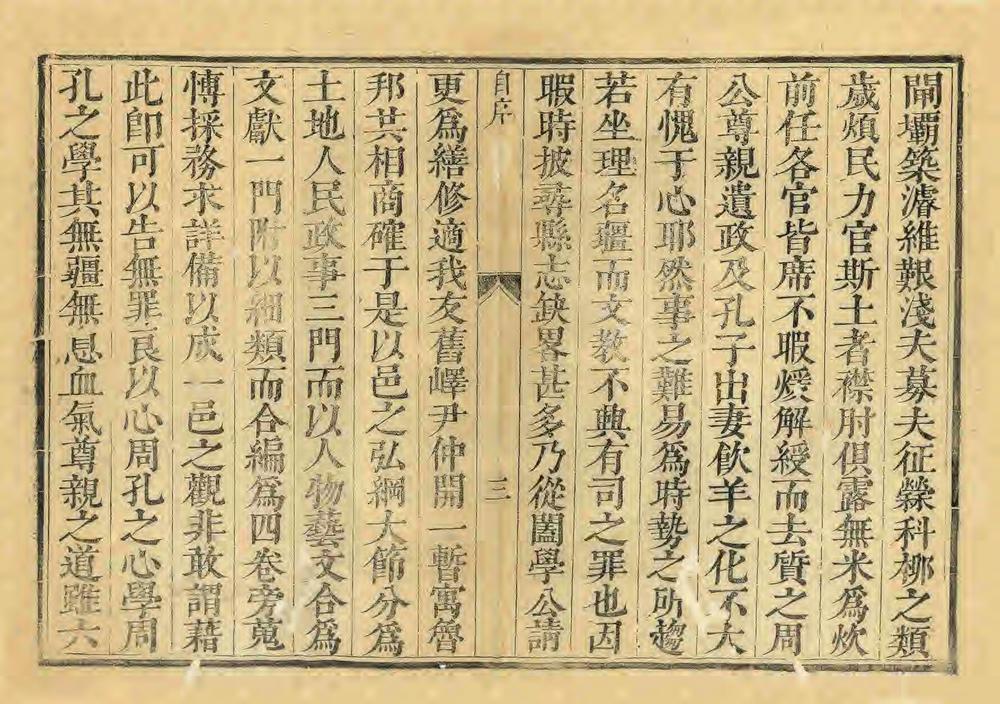 閘壩築濬維艱淺夫募夫征檾科柳之類
歲煩民力官斯土者襟肘俱露無米為炊
前任各官皆席不暇煖解綬而去質之周
公尊親遺政及孔子出妻飲羊之化不大
有愧于心耶然事之難易為時勢之所趨
若坐理名疆而文教不興有司之罪也因
暇時披尋縣志缺畧甚多乃從闔學公請
自序
三
更為繕修適我友舊嶧尹仲開一暫寓魯
邦共相商確于是以邑之弘綱大節分為
土地人民政事三門而以人物藝文合為
文獻一門附以細類而合編為四卷旁蒐
慱採務求詳備以成一邑之觀非敢謂藉
此卽可以告無罪良以心周孔之心學周
孔之學其無疆無息血氣尊親之道雖六